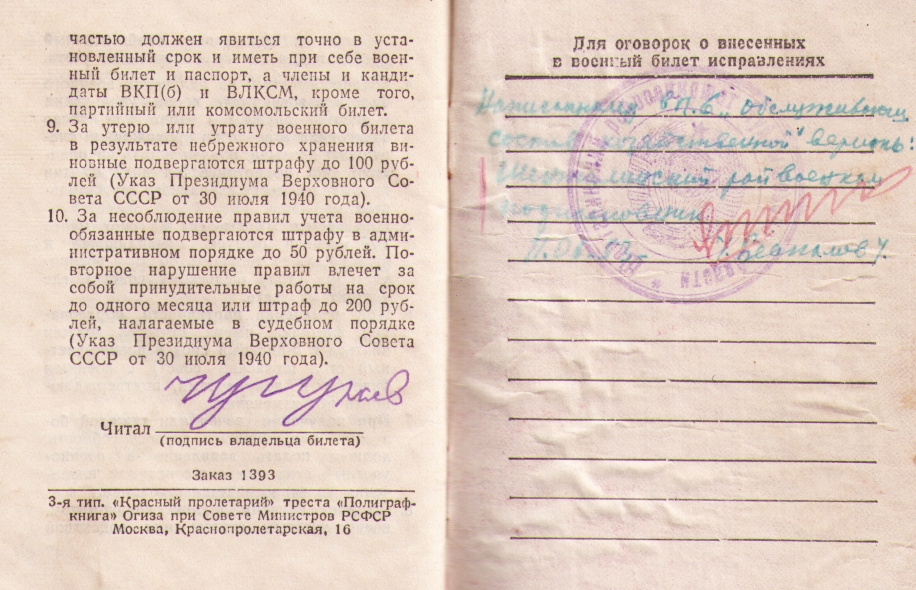 частью должен явиться точно в уста-
новленный срок и иметь при себе воен-
ный билет и паспорт, а члены и канди-
даты ВКП(б) и ВЛКСМ, кроме того,
партийный или комсомольский билет.
9. За утерю или утрату военного билета
в результате небрежного хранения ви-
новные подвергаются штрафу до 100 руб-
лей (Указ Президиума Верховного Со-
вета СССР от 30 июля 1940 года).
10. За несоблюдение правил учета военно-
обязанные подвергаются штрафу в адми-
нистративном порядке до 50 рублей. По-
вторное нарушение правил влечет за
собой принудительные работы на срок
до одного месяца или штраф до 200 руб-
лей, налагаемые в судебном порядке
(Указ Президиума Верховного Совета
СССР от 30 июля 1940 года).
Читал
(подпись владельца билета)
Заказ 1393
3-я тип. «Красный пролетарий» треста «Полиграф-
книга» Огиза при Совете Министров РСФСР
Москва, Краснопролетарская, 16
Для оговорок о внесенных
в военный билет исправлениях
Написанному
состав верить:
райвоенком
подполковник